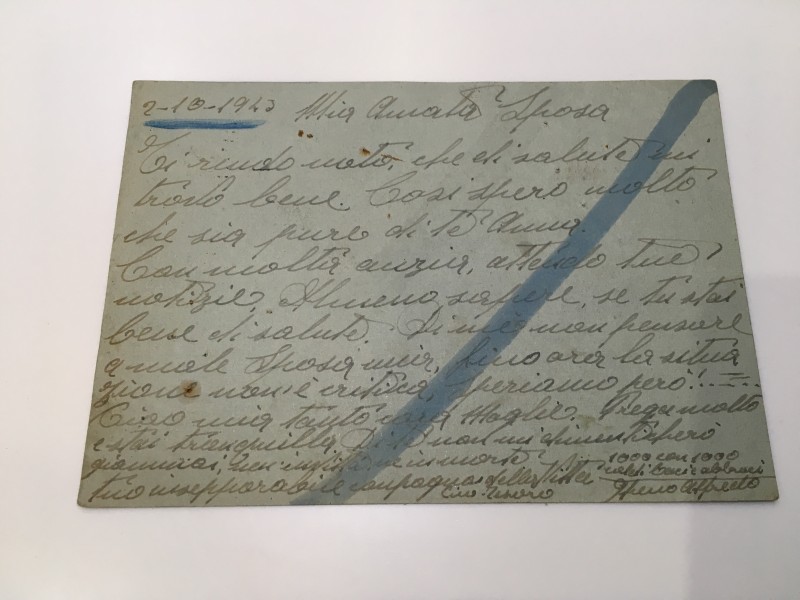 2-10-1943 Mia Amata Sposa
Ti rendo noto, che di salute mi
trovo bene. Cosi spero molto
che sia pure di te Anna.
Con molta anzia, attendo tue
notizie, Almeno sapere, se tu stai
bene di salute. Di me non pensare
a male Sposa mia, fino ora la situa
zione non é critica, speriamo peró!....
Ciao mia tanto cara Moglie. Prega molto
e stai tranquilla Di te non mi dimenticheró
giammai, in morte 1000 con 1000
tuo inseparabile compagno della Vita baci e abbracci
Ciao Tesoro